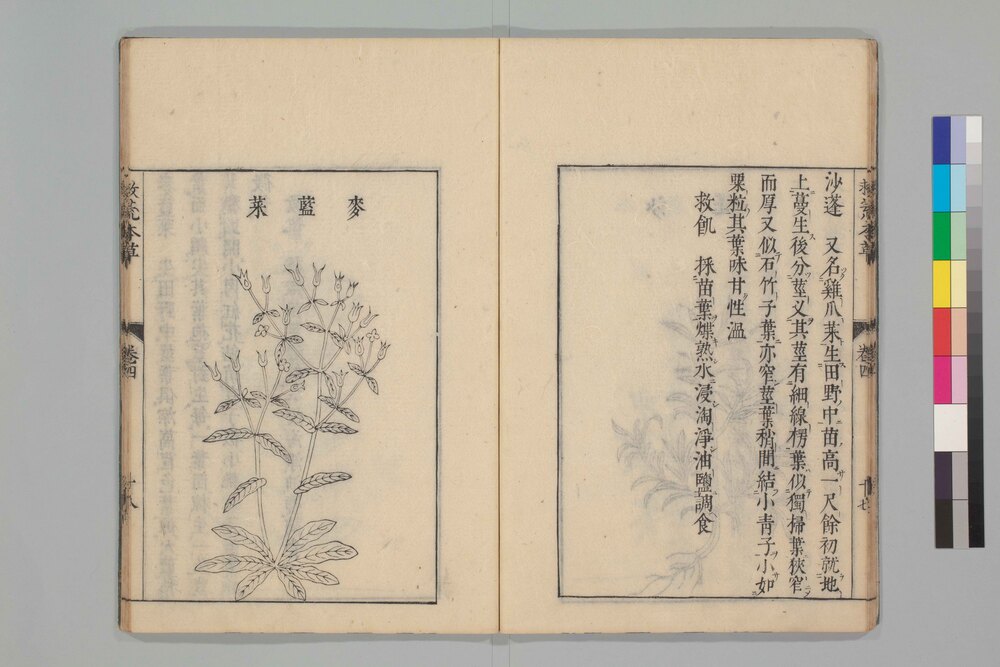 沙蓬　又名雞爪菜生田野中苗高一尺餘初就地
上蔓生後分莖叉其莖有細線楞葉似獨掃葉狹窄
而厚又似石竹子葉亦窄莖葉稍間結小青子小如
粟粒其葉味甘性溫
救飢　採苗葉煠熟水浸淘淨油鹽調食
救荒本草
卷四
十七
麥藍菜
救荒本草
卷四
十八